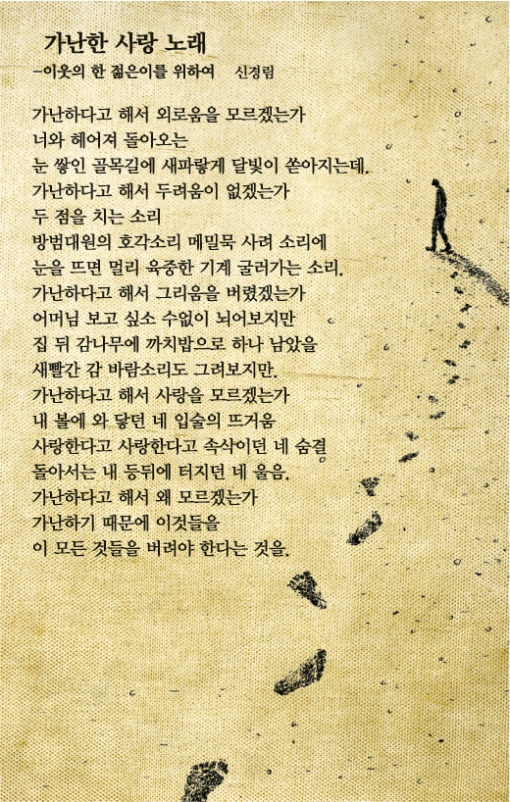 가난한 사랑 노래
-이웃의 한 젊은이를 위하여 신경림
가난하다고 해서 외로움을 모르겠는가
너와 헤어져 돌아오는
눈 쌓인 골목길에 새파랗게 달빛이 쏟아지는데.
가난하다고 해서 두려움이 없겠는가
두 점을 치는 소리
방범대원의 호각소리 메밀묵 사려 소리에
눈을 뜨면 멀리 육중한 기계 굴러가는 소리.
가난하다고 해서 그리움을 버렸겠는가
어머님 보고 싶소 수없이 뇌어보지만
집 뒤 감나무에 까치밥으로 하나 남았을
새빨간 감 바람소리도 그려보지만.
가난하다고 해서 사랑을 모르겠는가
내 볼에 와 닿던 네 입술의 뜨거움
사랑한다고 사랑한다고 속삭이던 네 숨결
돌아서는 내 등뒤에 터지던 네 울음.
가난하다고 해서 왜 모르겠는가
가난하기 때문에 이것들을
이 모든 것들을 버려야 한다는 것을.